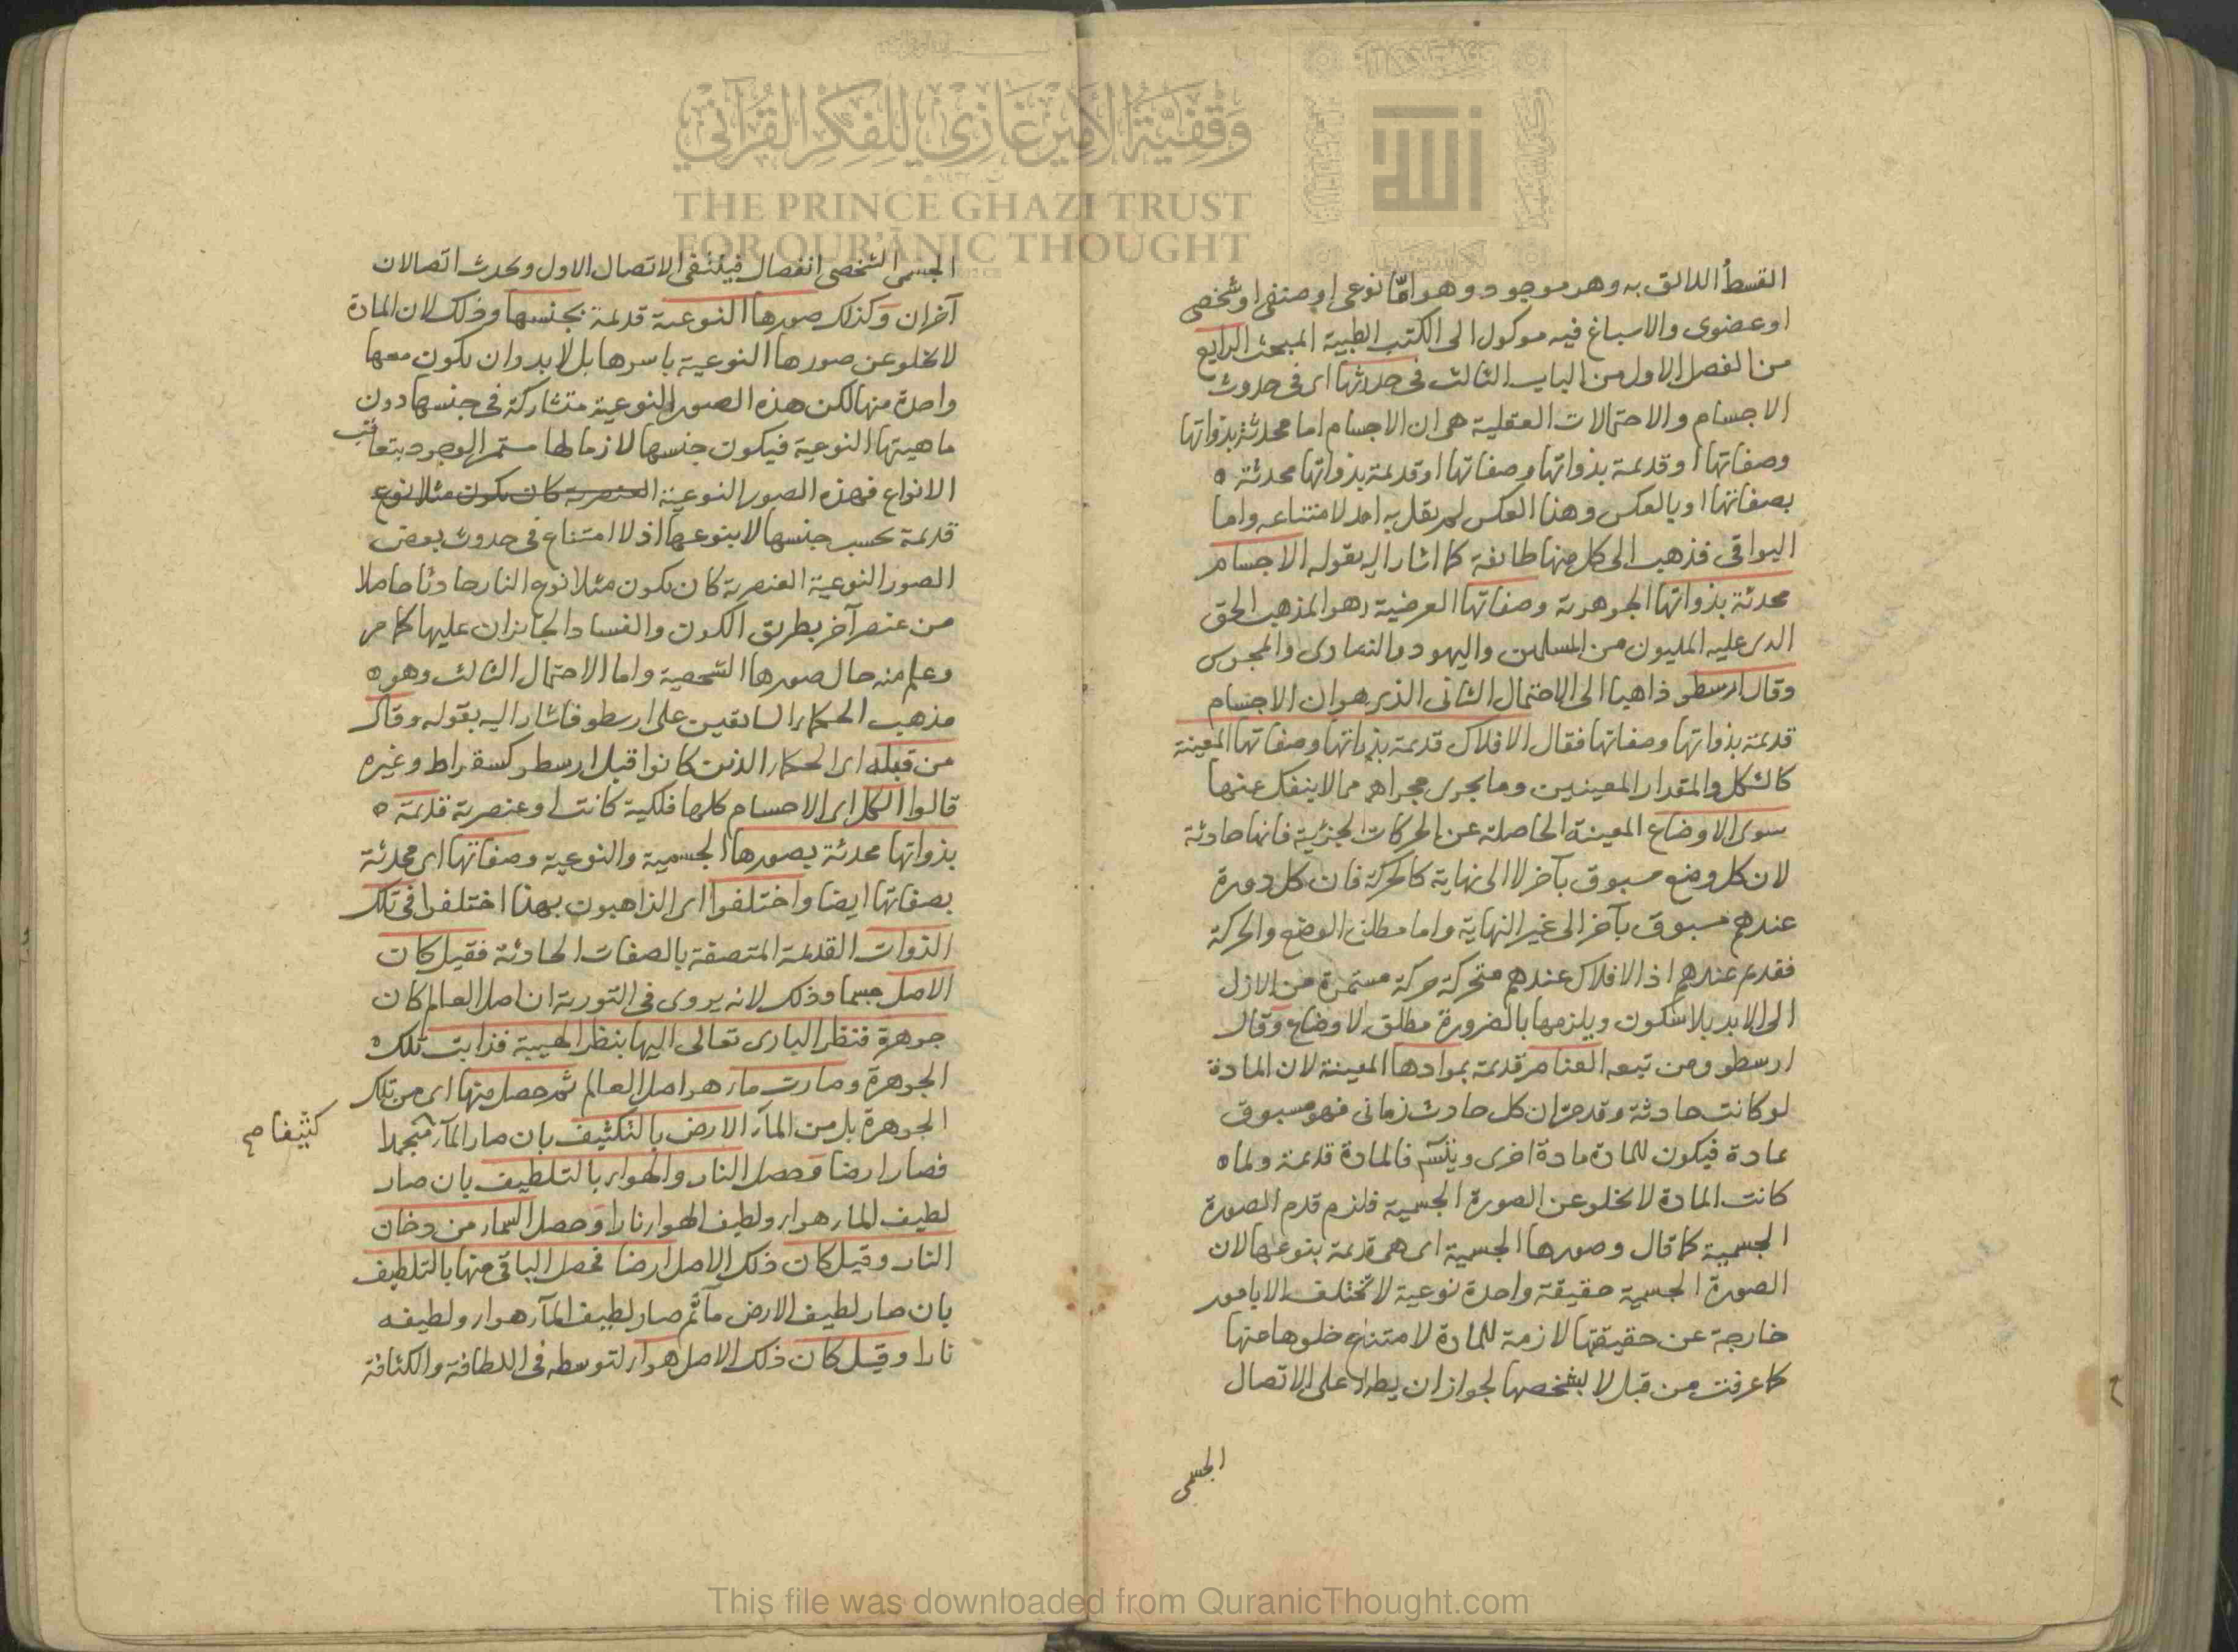 وقفية الأمير غازي للفكر القرآني
THE PRINCE GHAZI TRUST
FOR QUR'ĀNIC THOUGHT
الله
القسط اللائق به وهو موجود وهو اما نوعى او صنفى او شخصى
او عضوى والاسباغ فيه موكول الى الكتب الطبية المبحث الرابع
من الفصل الاول من الباب الثالث فى حدوثها اى فى حدوث
الاجسام والاحتمالات العقلية هى ان الاجسام اما محدثة بذواتها
وصفاتها او قديمة بذواتها وصفاتها او قديمة بذواتها محدثة ه
بصفاتها او بالعكس وهذا العكس لم يقل به احد لامتناعه واما
البواقى فذهب الى كل منها طائفة كما اشار اليه بقوله الاجسام
محدثة بذواتها الجوهرية وصفاتها العرضية وهو المذهب الحق
الذى عليه المليون من المسلمين واليهود والنصارى والمجوس
وقال ارسطو ذاهبا الى الاحتمال الثانى الذى هو ان الاجسام
قديمة بذواتها وصفاتها فقال الافلاك قديمة بذواتها وصفاتها المعينة
كالشكل والمقدار المعينين وما يجرى مجراهم مما لا ينفك عنها
سوى الاوضاع المعينة الحاصلة عن الحركات الجزئية فانها حادثة
لان كل وضع مسبوق بآخر لا الى نهاية كالحركة فان كل دورة
عندهم مسبوق بآخر الى غير النهاية واما مطلق الوضع والحركة
فقديم عندهم اذ الافلاك عندهم متحركة حركة مستمرة من الازل
الى الابد بلا سكون ويلزمها بالضرورة مطلق الاوضاع وقال
ارسطو ومن تبعه العناصر قديمة بموادها المعينة لان المادة
لو كانت حادثة وقد مر ان كل حادث زمانى فهو مسبوق
بمادة فيكون للمادة مادة اخرى ويتس فالمادة قديمة ولما ه
كانت المادة لا تخلو عن الصورة الجسمية فلزم قدم الصورة
الجسمية كما قال وصورها الجسمية اى هى قديمة بنوعها لان
الصورة الجسمية حقيقة واحدة نوعية لا تختلف الا بامور
خارجة عن حقيقتها لازمة للمادة لامتناع خلوها عنها
كما عرفت من قبل لا بشخصها لجواز ان يطرا على الاتصال
الجسمى
الجسمى الشخصى انفصال فينتفى الاتصال الاول ويحدث اتصالان
آخران وكذلك صورها النوعية قديمة بجنسها وذلك لان المادة
لا تخلو عن صورها النوعية باسرها بل لا بد وان يكون معها
واحدة منها لكن هذه الصور النوعية متشاركة فى جنسها دون
ماهيتها النوعية فيكون جنسها لازما لها مستمر الوجود بتعاقب
الانواع فهذه الصور النوعية العنصرية كان يكون مثلا نوع
قديمة بحسب جنسها لا بنوعها اذ لا امتناع فى حدوث بعض
الصور النوعية العنصرية كان يكون مثلا نوع النار حادثا حاصلا
من عنصر آخر بطريق الكون والفساد الجائزان عليها كما مر
وعلم منه حال صورها الشخصية واما الاحتمال الثالث وهو ه
مذهب الحكماء السابقين على ارسطو فاشار اليه بقوله وقال
من قبله اى الحكماء الذين كانوا قبل ارسطو كسقراط وغيره
قالوا الكل اى الاجسام كلها فلكية كانت او عنصرية قديمة ه
بذواتها محدثة بصورها الجسمية والنوعية وصفاتها اى محدثة
بصفاتها ايضا واختلفوا اى الذاهبون بهذا اختلفوا فى تلك
الذوات القديمة المتصفة بالصفات الحادثة فقيل كان
الاصل جسما وذلك لانه يروى فى التورية ان اصل العالم كان
جوهرة فنظر البارى تعالى اليها بنظر الهيبة فذابت تلك ه
الجوهرة وصارت ماء هو اصل العالم ثم حصل منها اى من تلك
الجوهرة بل من الماء الارض بالتكثيف بان صار الماء منجمدا
كثيفا صح
فصار ارضا وحصل النار والهواء بالتلطيف بان صار
لطيف الماء هواء ولطيف الهواء نارا وحصل السماء من دخان
النار وقيل كان ذلك الاصل ارضا فحصل الباقى منها بالتلطيف
بان صار لطيف الارض ماء ثم صار لطيف الماء هواء ولطيفه
نارا وقيل كان ذلك الاصل هواء لتوسطه فى اللطافة والكثافة
This file was downloaded from QuranicThought.com